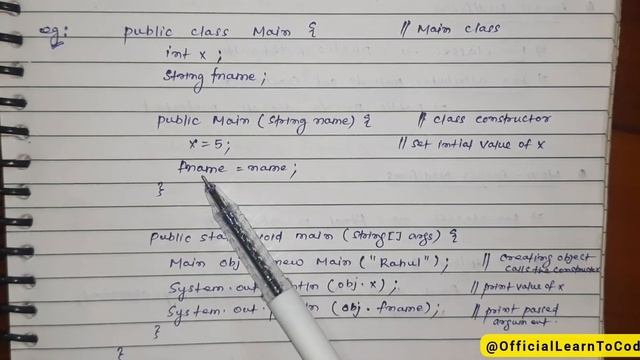 eg: public class Main { // Main class
int x ;
String fname ;
public Main (String name) { // class constructor
x = 5 ; // set intial value of x
fname = name ;
}
public sta void main (String[] args) {
Main obj new Main ("Rahul") ; // creating object
calls the constructor
System.out ln (obj.x) ; // print value of x
System.out.p n (obj.fname) ; // print passed
argument.
}
}
@OfficialLearnToCod